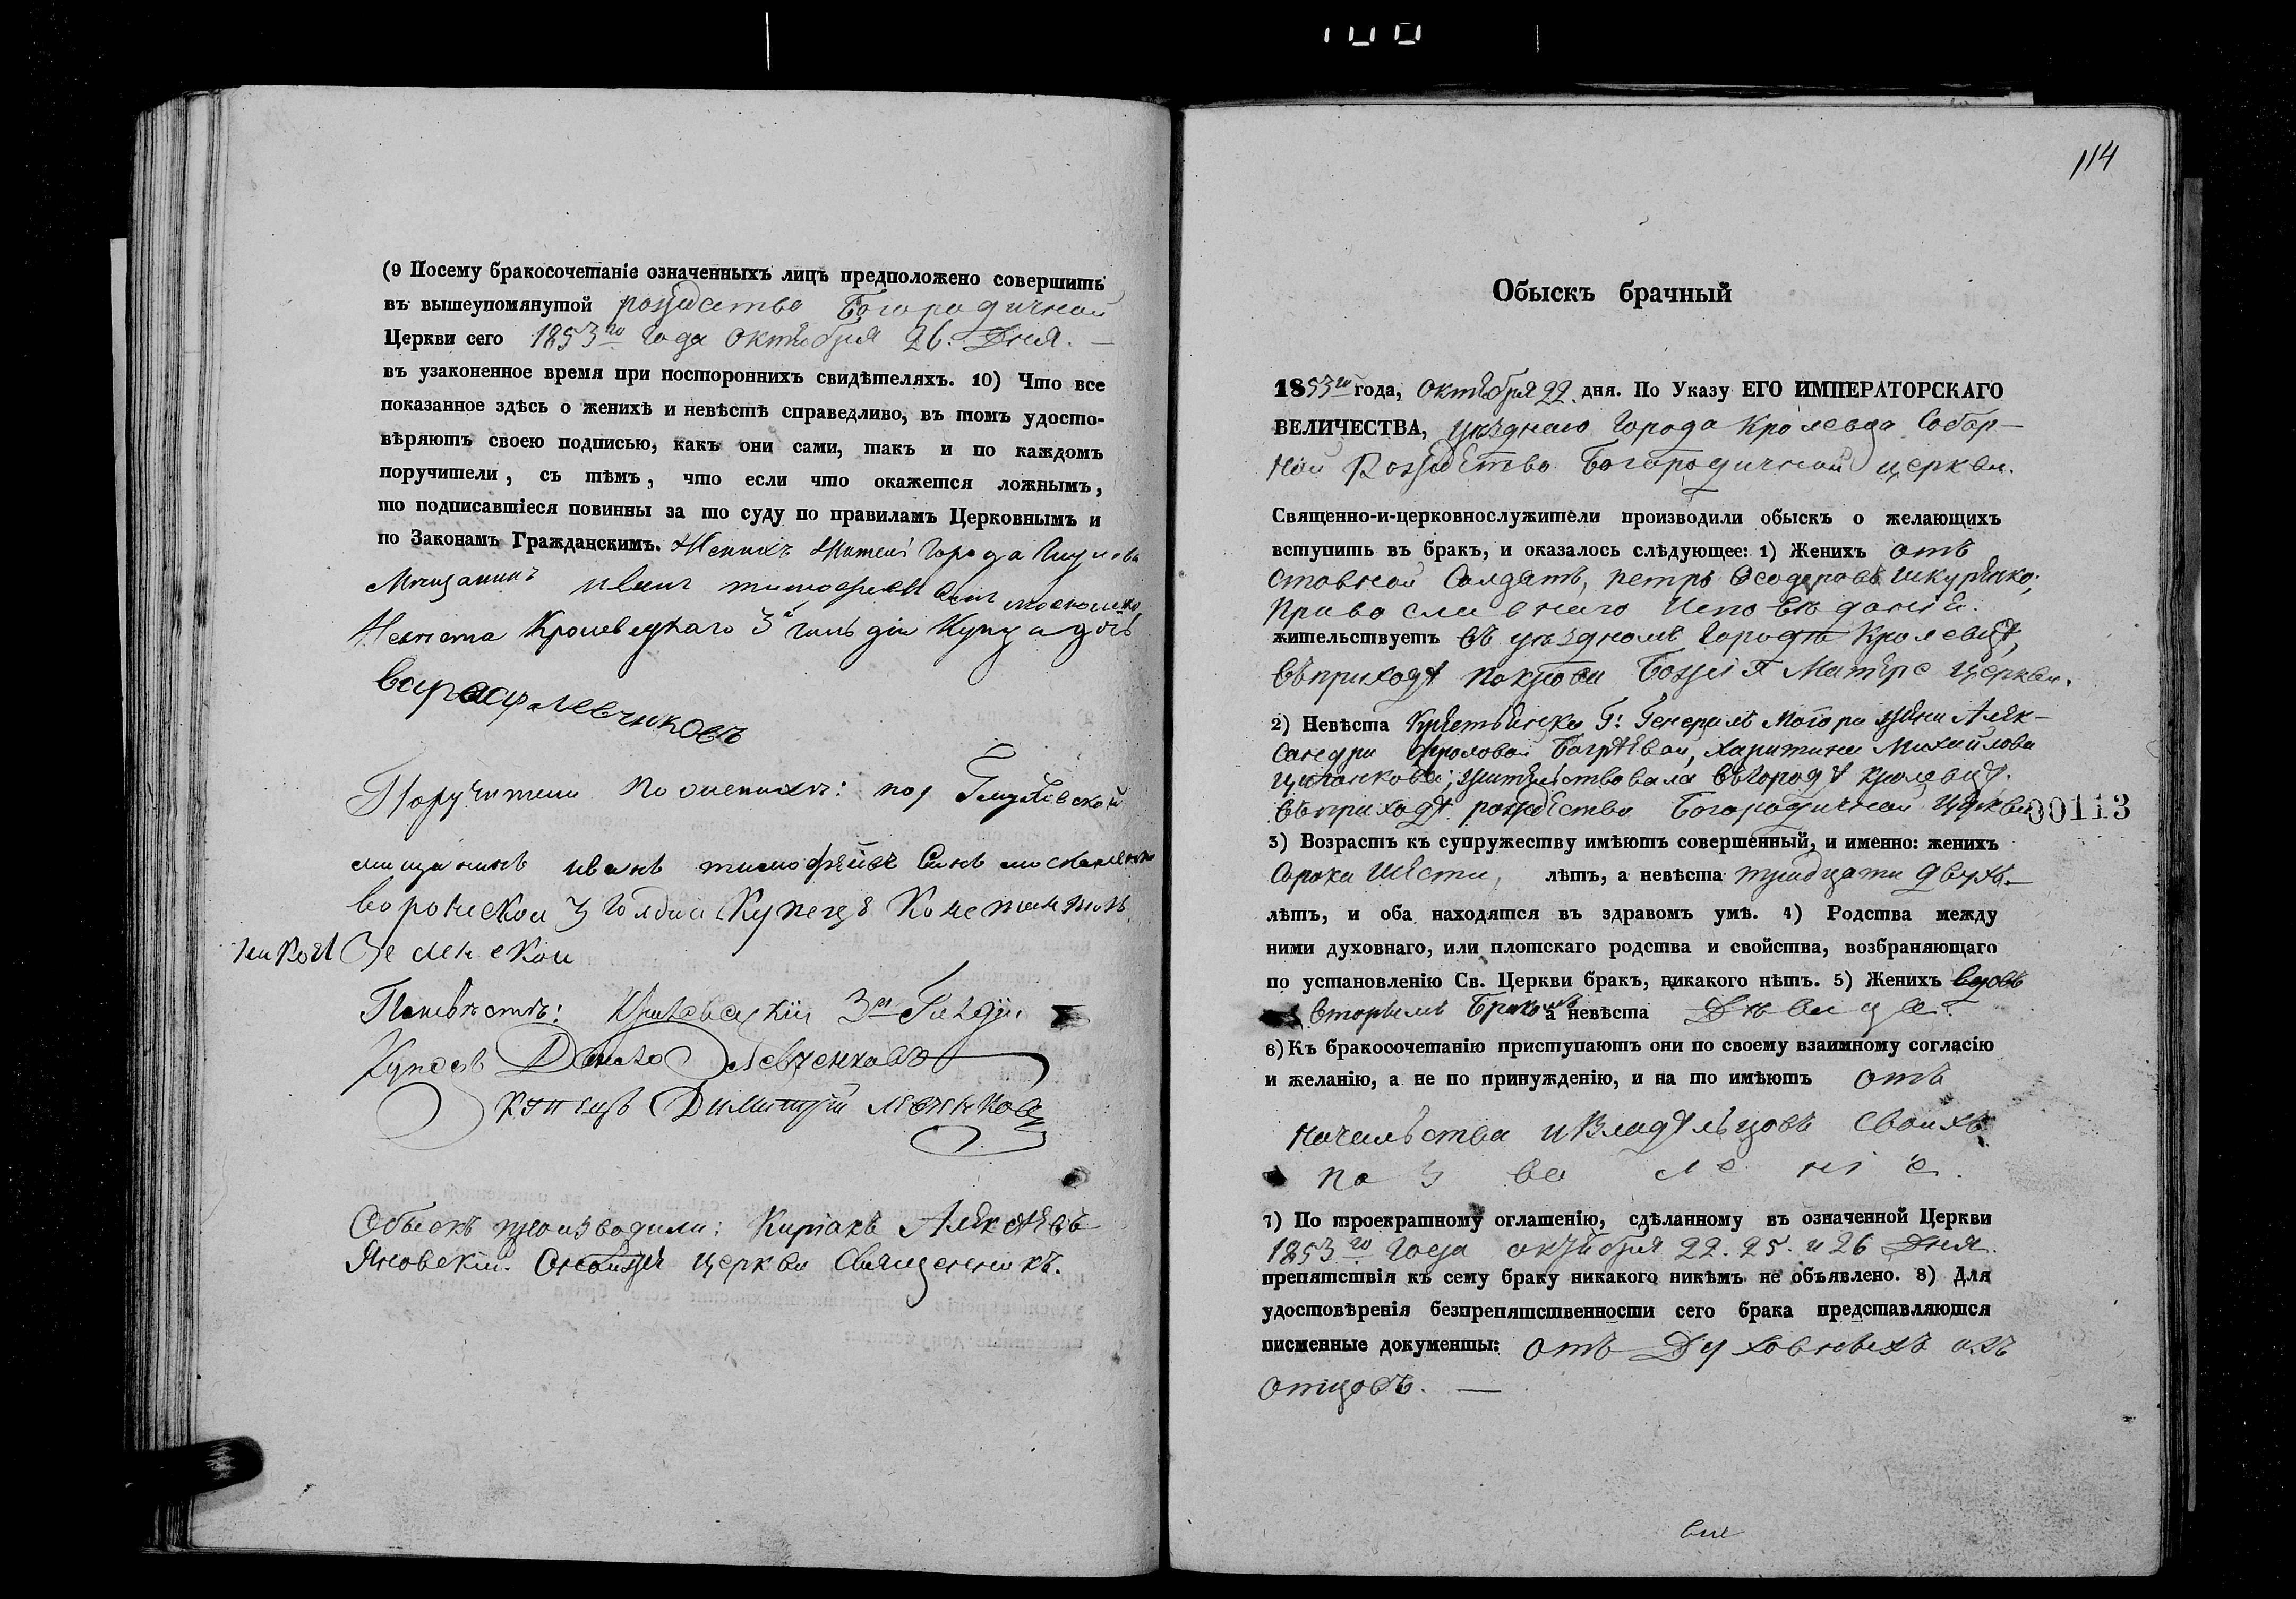 100
(9 Посему бракосочетаніе означенныхъ лицъ предположено совершить
въ вышеупомянутой рождество Богородичной
Церкви сего 1853го года октября 26. Дня. —
въ узаконенное время при постороннихъ свидѣтеляхъ. 10) Что все
показанное здѣсь о женихѣ и невѣстѣ справедливо, въ томъ удосто-
вѣряютъ своею подписью, какъ они сами, такъ и по каждомъ
поручители, съ тѣмъ, что если что окажется ложнымъ,
то подписавшіеся повинны за то суду по правиламъ Церковнымъ и
по Законамъ Гражданскимъ. Женихъ Житель Города
Мещанинъ Иванъ тимофеев
Невеста Кролевецкаго 3й гильдіи Купца дочь
Левченковъ
Поручители по женихе: Глуховской
мещанинъ иванъ тимофѣйвъ Синъ
воронежской 3 Купецъ
Зеленской
По невѣстѣ: Кролевецкій 3й Гилдіи
Купецъ Данило Левченковъ
купецъ Димитрій Левченковъ
Обыскъ производили: Киріакъ Алексѣевъ
Яновскій. церкви Священникъ.
114
Обыскъ брачный
1853го года, октября 22. дня. По Указу ЕГО ИМПЕРАТОРСКАГО
ВЕЛИЧЕСТВА, уѣзднаго Города Кролевца Собор-
ной Рождество Богородичной церкви.
Священно-и-церковнослужители производили обыскъ о желающихъ
вступить въ бракъ, и оказалось слѣдующее: 1) Женихъ отъ
ставной Солдатъ, петръ Ѳеодоровъ Шкурѣнко;
Православнаго Исповѣданія.
жительствуетъ въ уѣздномъ Городѣ Кролевцѣ,
въ приходѣ покрова Божія Матере церкви.
2) Невѣста Крѣстьянка Г. Генералъ Маіорши Алек-
сандри Фроловой харитина Михайлова
жительствовала въ Городѣ Кролевцѣ.
въ приходѣ рождество Богородичной Церкви
00113
3) Возрастъ къ супружеству имѣютъ совершенный, и именно: женихъ
Сорока Шести, лѣтъ, а невѣста тридцати двухъ.—
лѣтъ, и оба находятся въ здравомъ умѣ. 4) Родства между
ними духовнаго, или плотскаго родства и свойства, возбраняющаго
по установленію Св. Церкви бракъ, никакого нѣтъ. 5) Женихъ вдовъ
вторымъ Бракомъ а невѣста Дѣвица.
6) Къ бракосочетанію приступаютъ они по своему взаимному согласію
и желанію, а не по принужденію, и на то имѣютъ отъ
начальства и владѣльцовъ своихъ
позволеніе.
7) По троекратному оглашенію, сдѣланному въ означенной Церкви
1853го Года октября 22. 25. и 26 Дня.
препятствія къ сему браку никакого никѣмъ не объявлено. 8) Для
удостовѣренія безпрепятственности сего брака представляются
писменные документы: отъ Духовныхъ ихъ
отцовъ. —